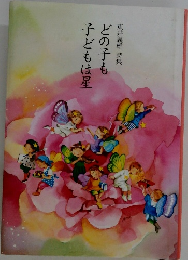 どの子も
子どもは星